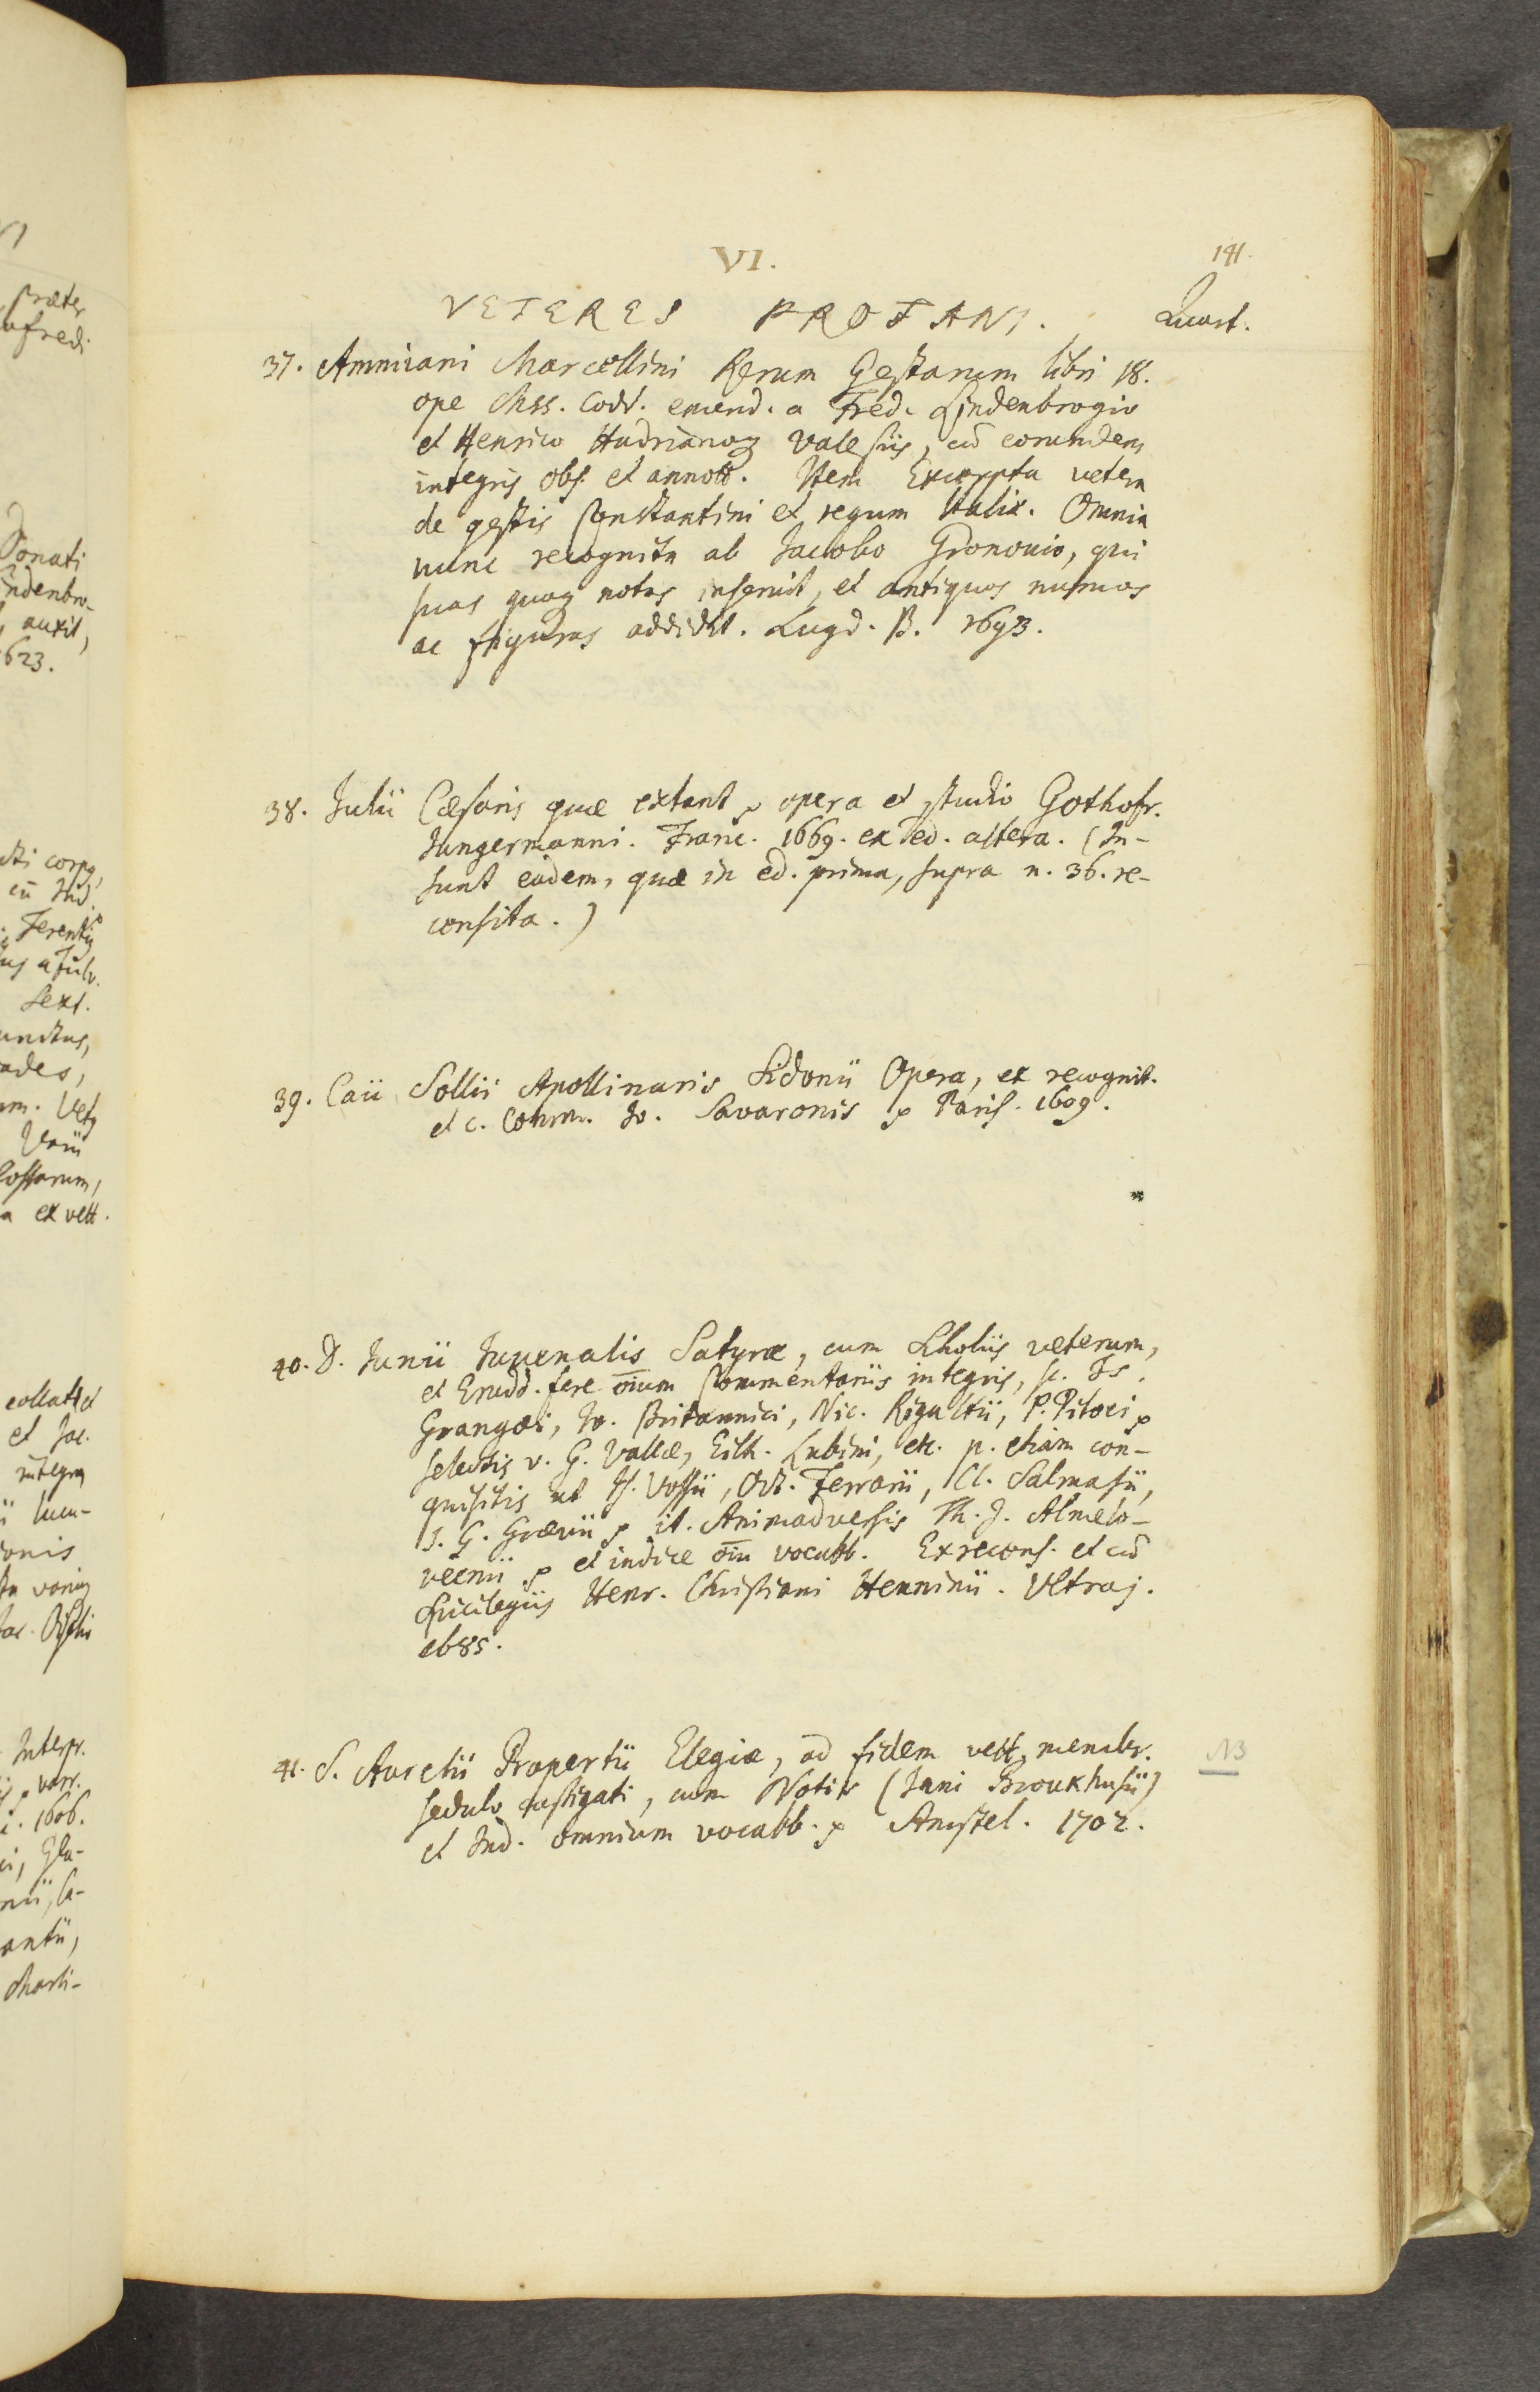 VI.
141.
VETERES PROFANI. Quart.
37. Ammiani Marcellini Rerum Gestarum libri 18.
ope Mss. Codd. emend. a Fred. Lindenbrogio
et Henrico Hadrianoq Valesiis, cū eorundem
integris obs. et annott. Item Excerpta vetera
de gestis Constantini et regum Italiæ. Omnia
nunc recognita ab Jacobo Gronovio, qui
suas quoq notas inseruit, et antiquos numos
ac figuras addidit. Lugd. B. 1693.
38. Julii Cæsaris quæ extant, opera et studio Gothofr.
Jungermanni. Franc. 1669. ex ed. altera. (In-
sunt eadem, quæ in ed. prima, supra n. 36. re-
censita.)
39. Caii Sollii Apollinaris Sidonii Opera, ex recognit.
et c. Comm. Jo. Savaronis Paris. 1609.
*
40. D. Junii Juvenalis Satyræ, cum Scholiis veterum,
et Erudd. fere oīum Commentariis integris, sc.
Grangæi, Jo. Britannici, Nic. Rigaltii, P. Pitoei
selectis v. G. Vallæ, Eilh. Lubini, etc. p. etiam con-
quisitis ut Is. Vossii, Oct. Ferrarii, Cl. Salmasii,
J. G. Grævii it. Animadversis Th. J. Almelo-
veenii et indice oīū vocabb. Ex recens. et cū
Spicilegiis Henr. Christiani Henninii. Ultraj.
1685.
41. S. Aurelii Propertii Elegiæ, ad fidem vett. membr. NB
sedulo castigati, cum Notis (Jani Broukhusii)
et Ind. omnium vocabb. Amstel. 1702.
præter
Donati
auxit,
623.
corpq
Sext.
ades,
Varii
a ex vett.
et Jac.
Interpr.
1606.
antii,